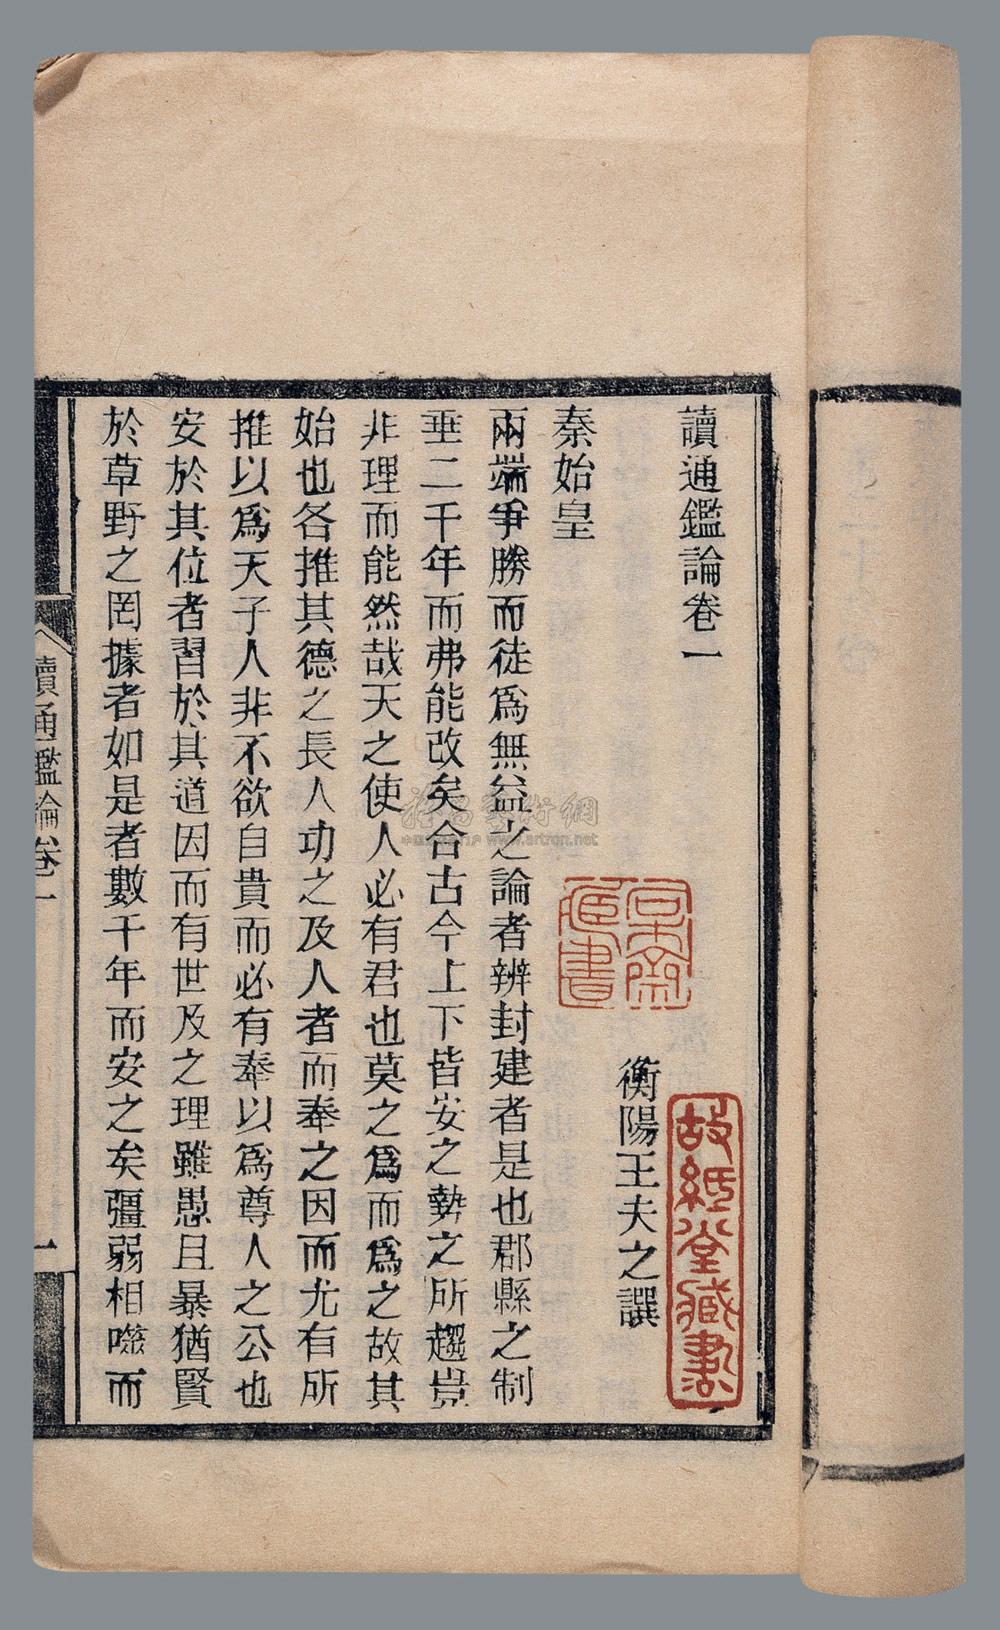 讀通鑑論卷一
衡陽王夫之譔
秦始皇
兩端爭勝而徒爲無益之論者辨封建者是也郡縣之制
垂二千年而弗能改矣合古今上下皆安之勢之所趨豈
非理而能然哉天之使人必有君也莫之爲而爲之故其
始也各推其德之長人功之及人者而奉之因而尤有所
推以爲天子人非不欲自貴而必有奉以爲尊人之公也
安於其位者習於其道因而有世及之理雖愚且暴猶賢
於草野之罔據者如是者數千年而安之矣彊弱相噬而
讀通鑑論卷一
一
故紙堂藏書
www.artron.net